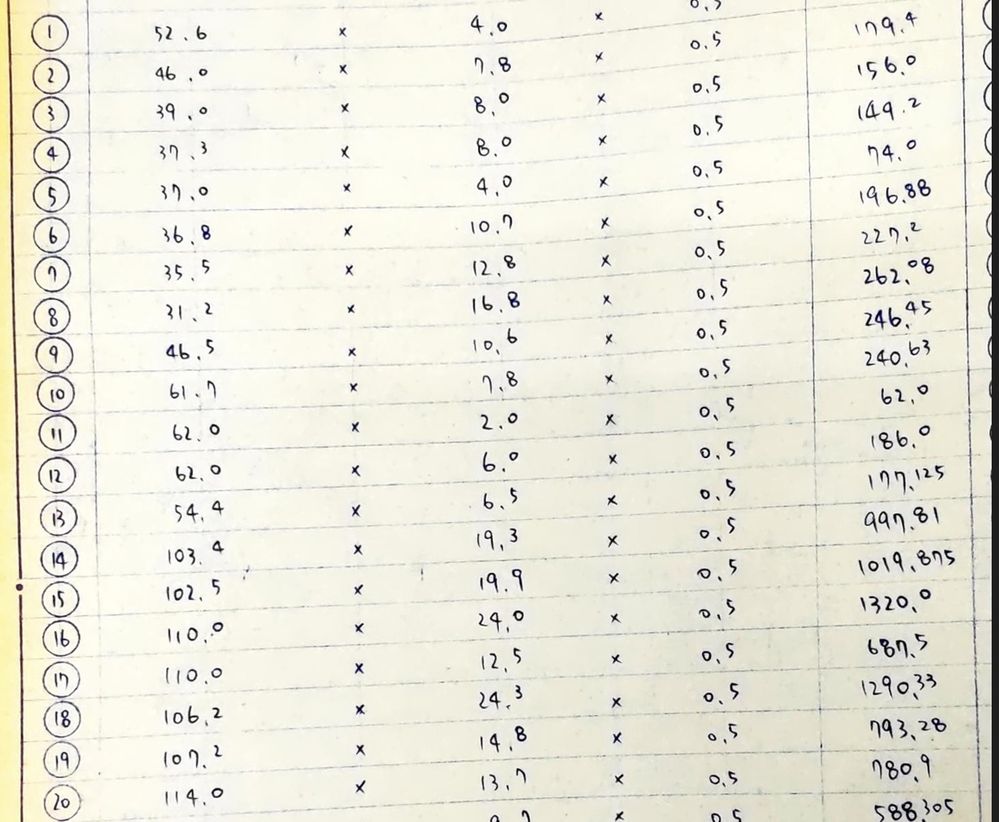 ① 52.6 × 4.0 × 0.5
② 46.0 × 7.8 × 0.5 179.4
③ 39.0 × 8.0 × 0.5 156.0
④ 37.3 × 8.0 × 0.5 149.2
⑤ 37.0 × 4.0 × 0.5 74.0
⑥ 36.8 × 10.7 × 0.5 196.88
⑦ 35.5 × 12.8 × 0.5 227.2
⑧ 31.2 × 16.8 × 0.5 262.08
⑨ 46.5 × 10.6 × 0.5 246.45
⑩ 61.7 × 7.8 × 0.5 240.63
⑪ 62.0 × 2.0 × 0.5 62.0
⑫ 62.0 × 6.0 × 0.5 186.0
⑬ 54.4 × 6.5 × 0.5 177.125
⑭ 103.4 × 19.3 × 0.5 997.81
⑮ 102.5 × 19.9 × 0.5 1019.875
⑯ 110.0 × 24.0 × 0.5 1320.0
⑰ 110.0 × 12.5 × 0.5 687.5
⑱ 106.2 × 24.3 × 0.5 1290.33
⑲ 107.2 × 14.8 × 0.5 793.28
⑳ 114.0 × 13.7 × 0.5 780.9
× 0.5 588.305